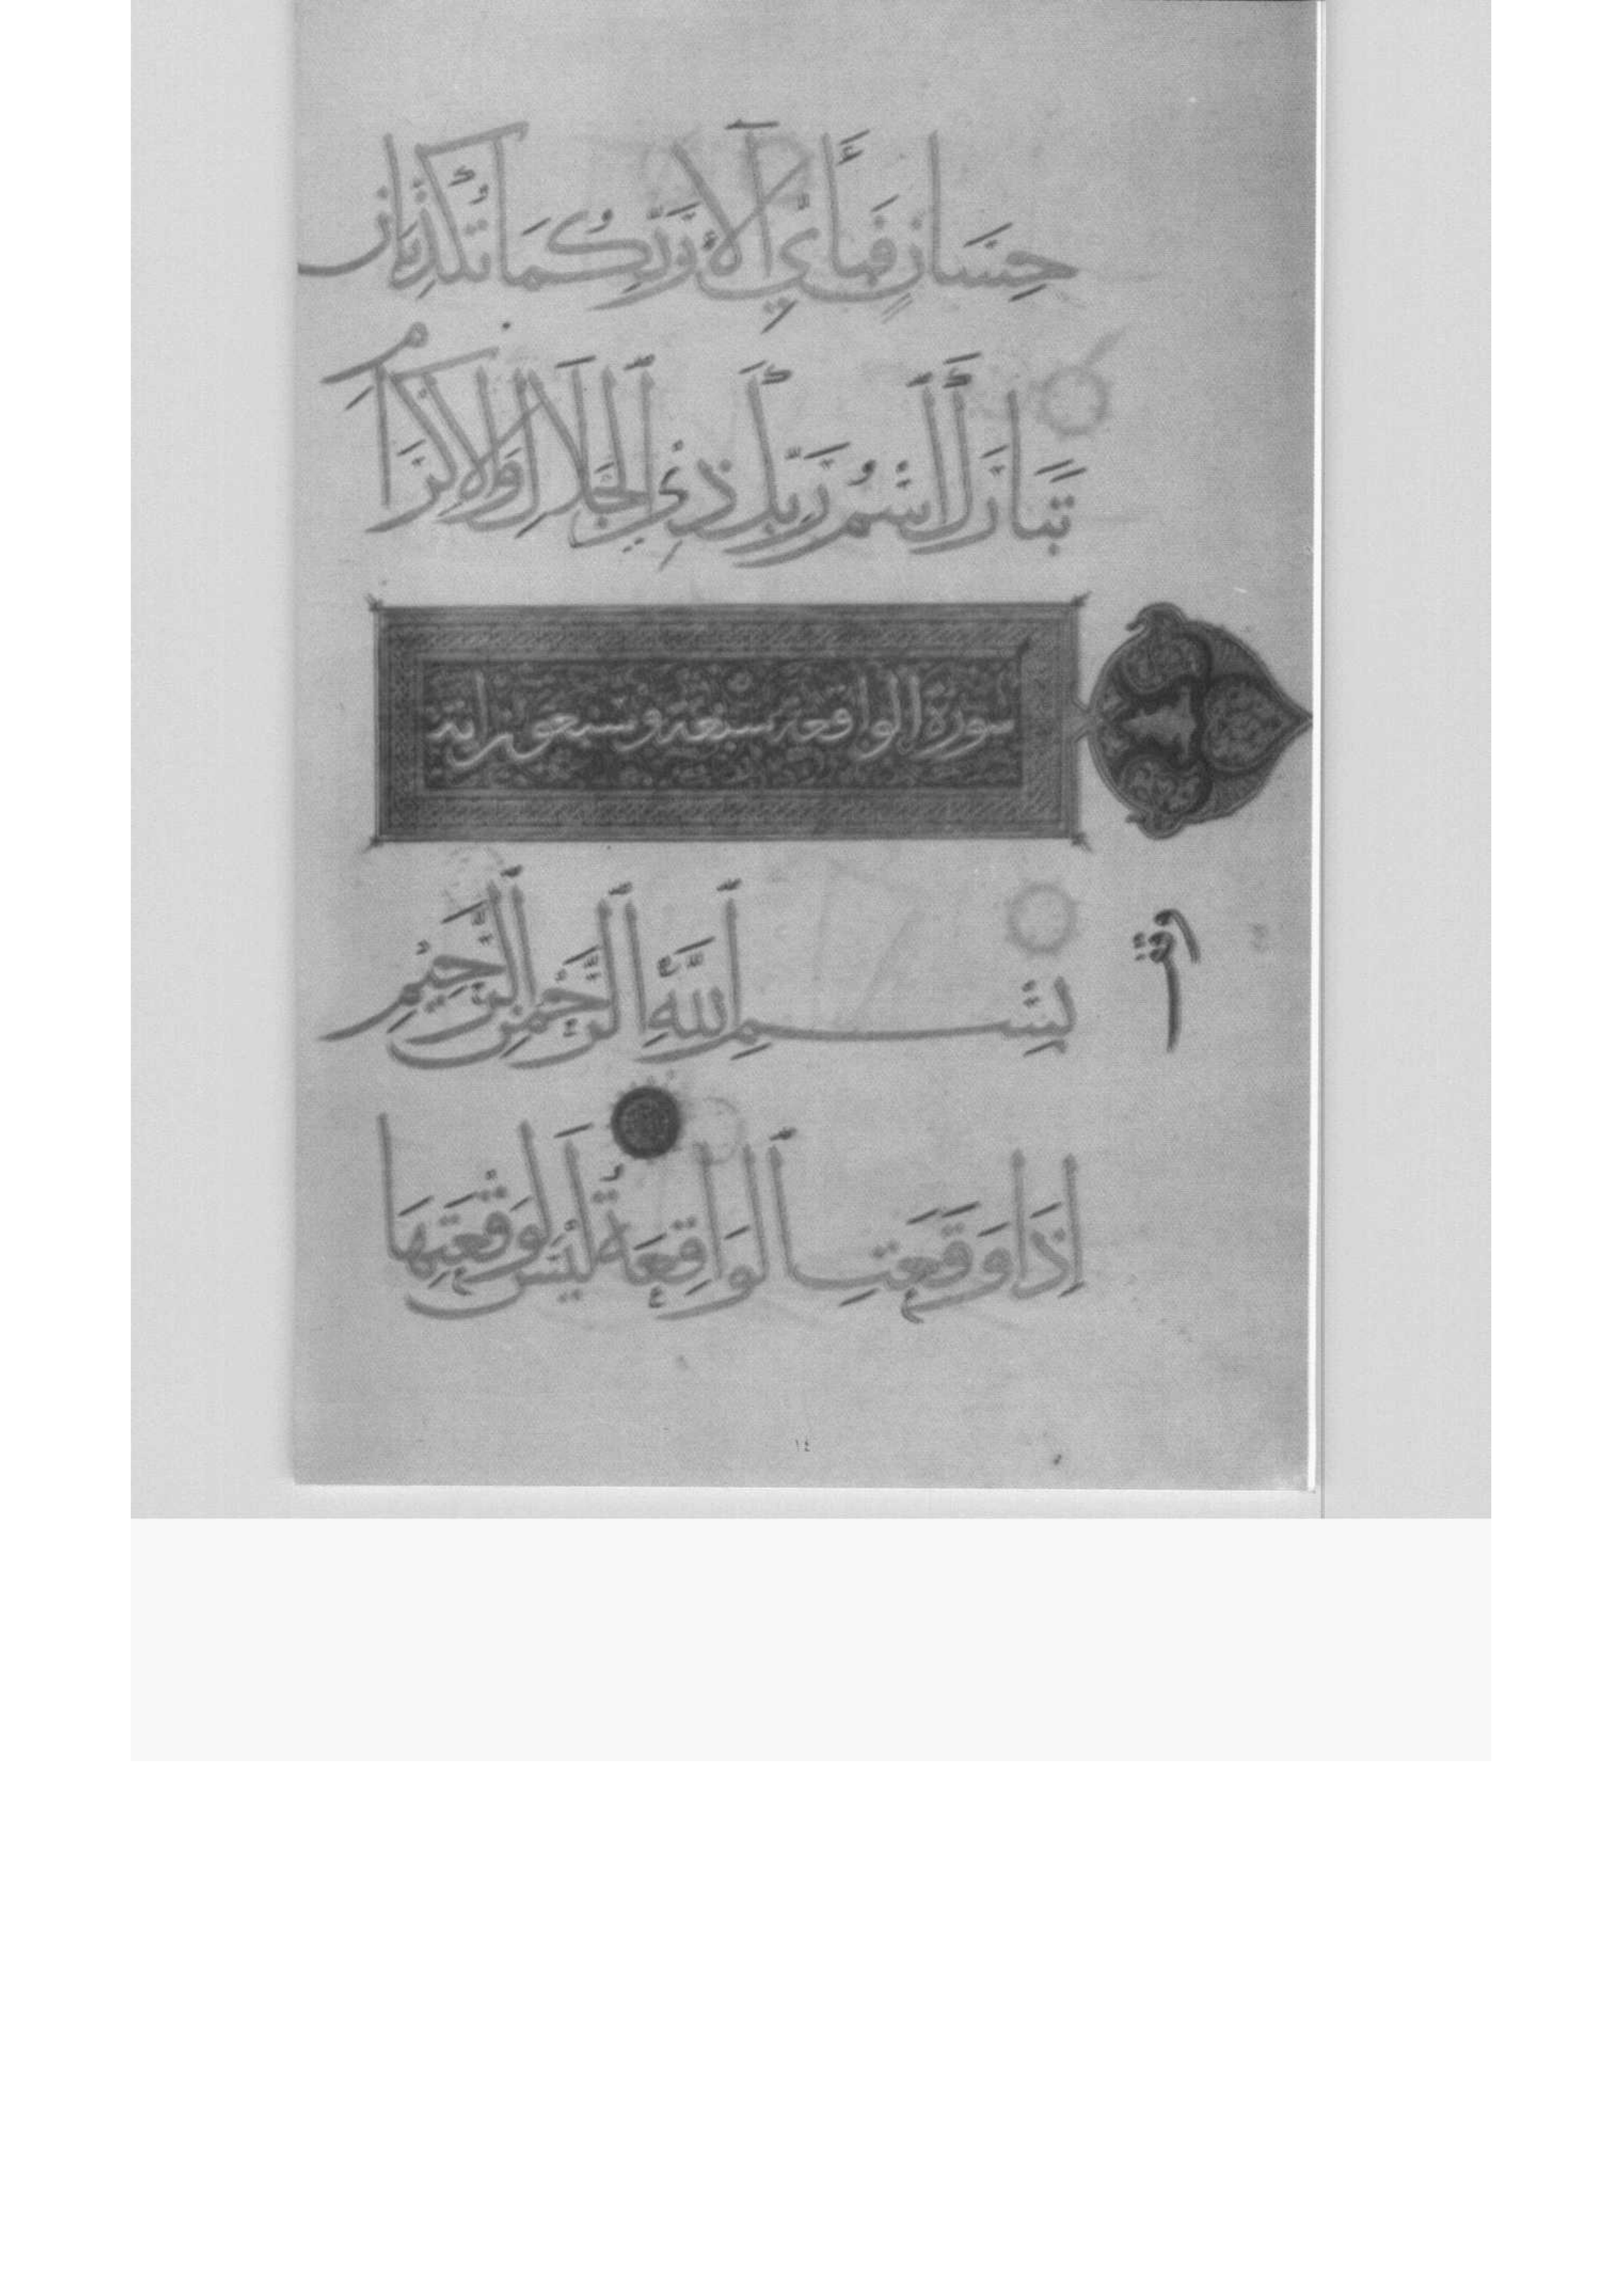 حِسَانٍ فَبِأَيِّ آلَاءِ رَبِّكُمَا تُكَذِّبَانِ
تَبَارَكَ اسْمُ رَبِّكَ ذِي الْجَلَالِ وَالْإِكْرَامِ
سورة الواقعة سبعة وتسعون اية
بِسْمِ اللَّهِ الرَّحْمَنِ الرَّحِيمِ
إِذَا وَقَعَتِ الْوَاقِعَةُ لَيْسَ لِوَقْعَتِهَا
١٤